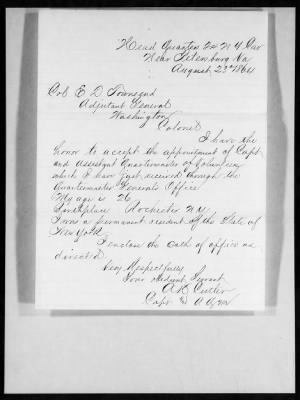 Head Quarters 2" N Y Cav
Near Petersburg Va
August 23rd 1864
Col E. D. Townsend
Adjutant General
Washington
Colonel
I have the
honor to accept the appointment of Capt
and Assistant Quartermaster of Volunteers
which I have just received through the
Quartermaster Generals Office
My age is 26
Birthplace Rochester N.Y.
I was a permanent resident of the State of
New York
I enclose the oath of office as
directed
Very Respectfully
Your Obedient Servant
Cutler
Capt & A.Q.M